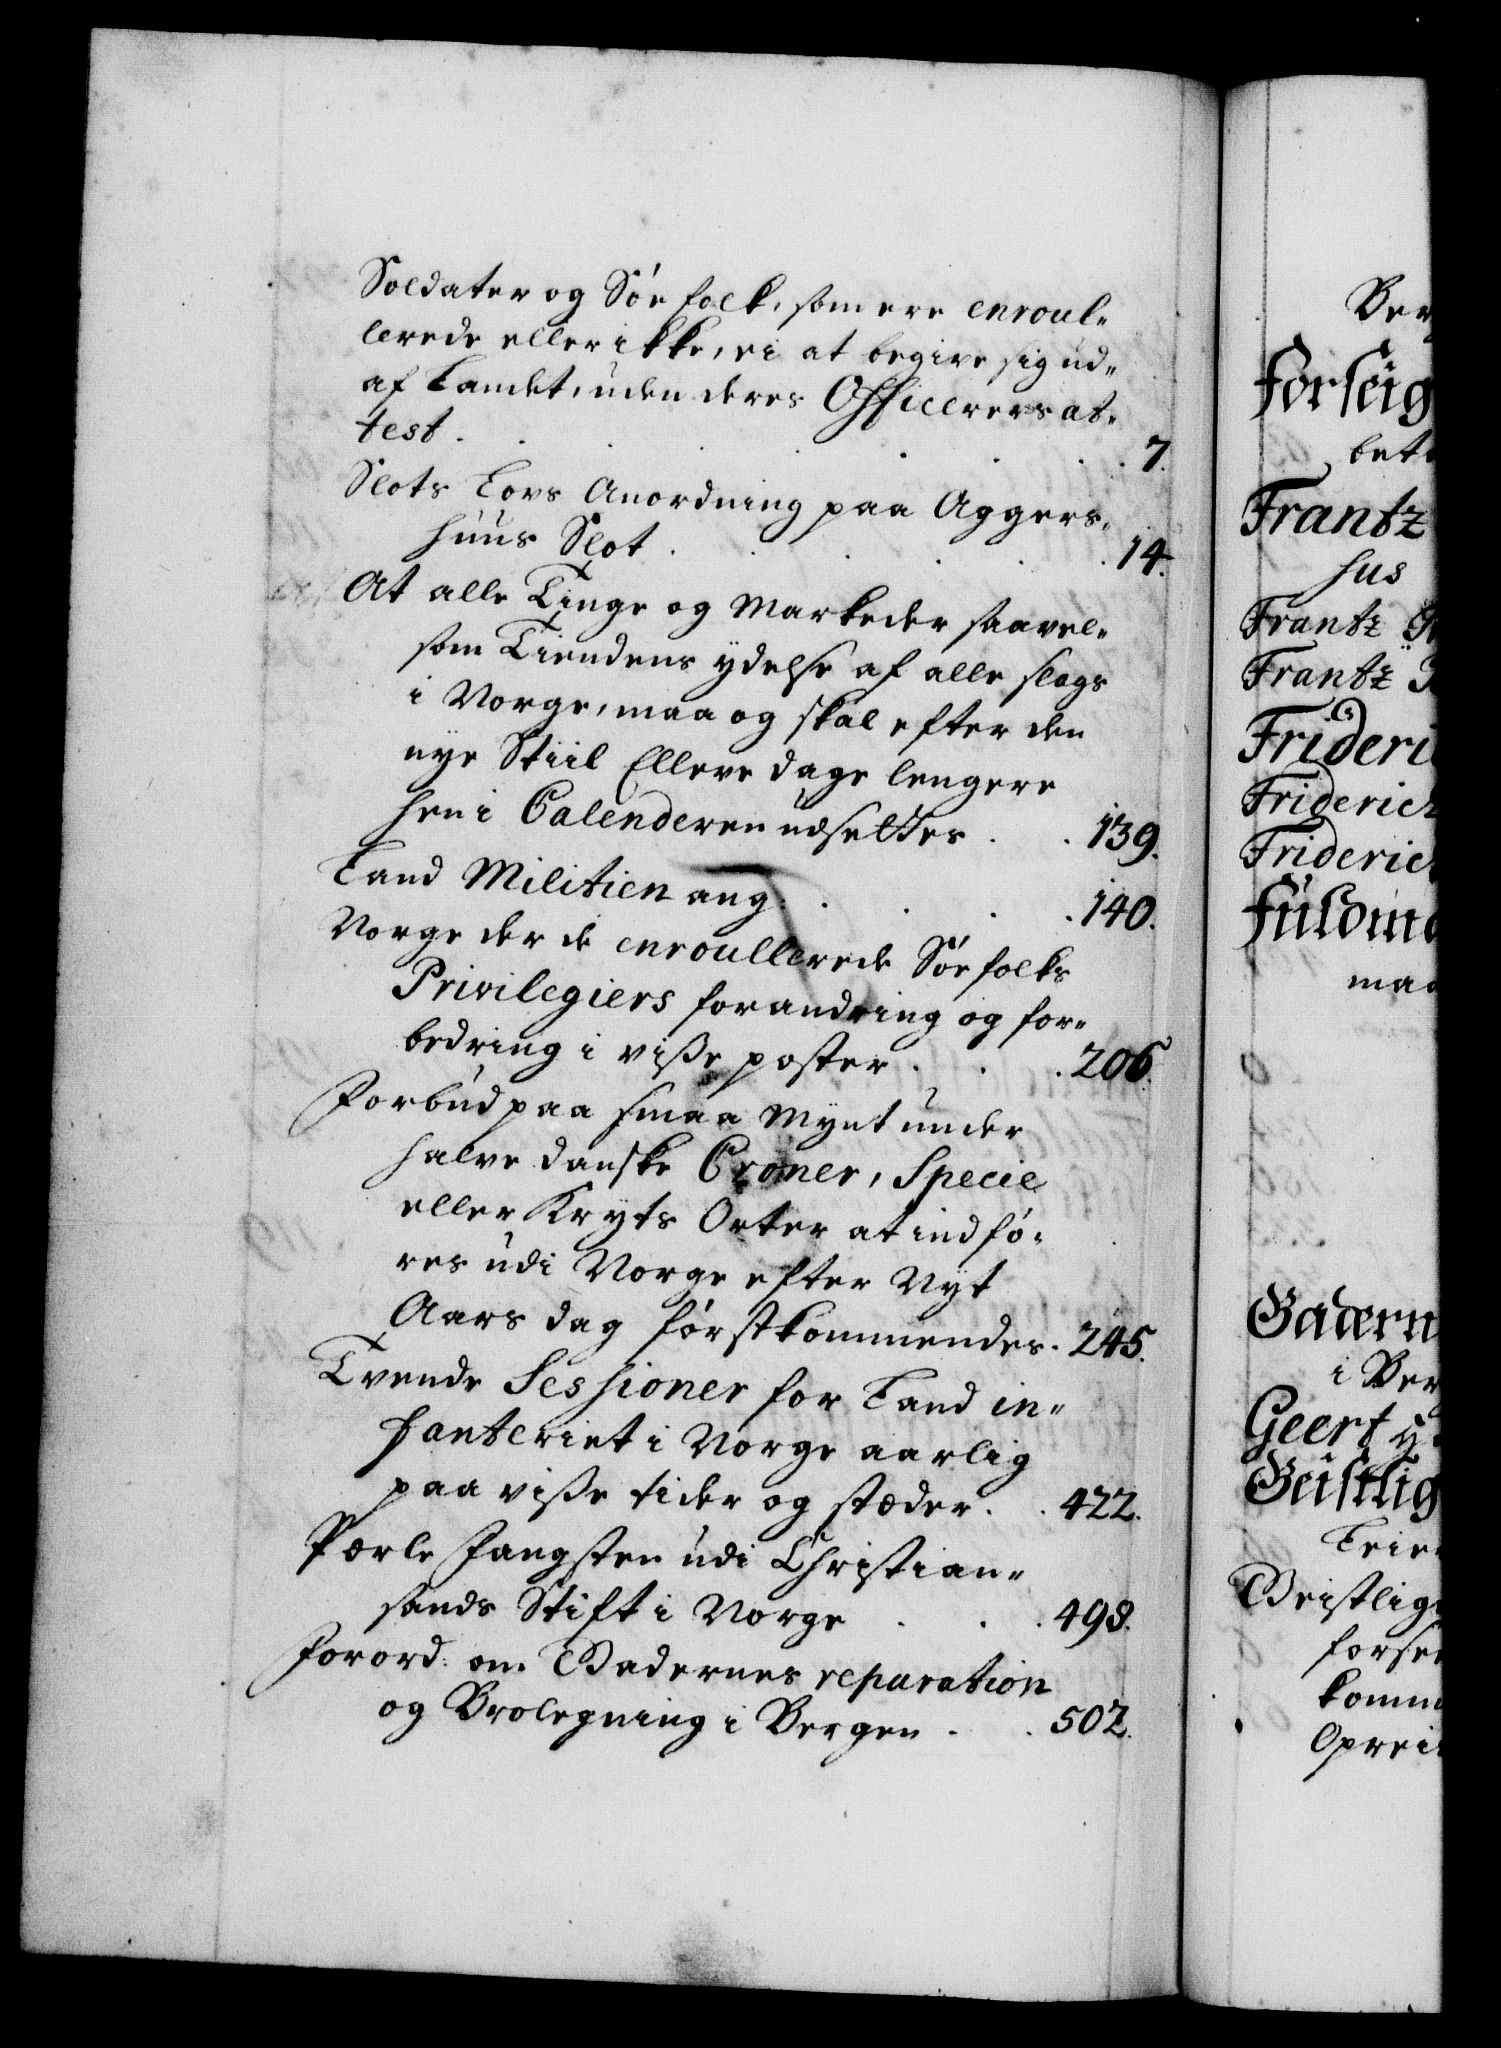 Soldater og Söe folk, som ere enroul-
lerede eller ikke, ei at begive sig ud-
af Landet, uden deres Officerers at-
test . . . . . . . 7.
Slots Lovs Anordning paa Aggers-
huus Slot . . . . . 14.
At alle Tinge og Markeder saavel-
som Tiendens ydelse af alle slags
i Norge, maa og skal efter den
nye Stiil Elleve dage lengere
hen i Calenderen udsettes . . 139.
Land Militien ang: . . . . 140.
Norge der de enroullerede Söe folks
Privilegiers forandring og for-
bedring i visse poster . . . 206.
Forbud paa smaa Mynt under
halve danske Croner, Specie
eller Kryts Orter at indfö-
res udi Norge efter Nyt
Aars dag förstkommendes . 245.
Tvende Sessioner for Land in-
fanteriet i Norge aarlig
paa visse tider og stæder . . 422.
Perle Fangsten udi Christian-
sands Stift i Norge . . . 498.
Forord: om Gadernes reparation
og Brolegning i Bergen . . 502.
Ber
Forseig
bet
Frantz
hus
Frantz
Frantz
Frideri
Friderich
Friderich
Fuldma
maa
Gadern
i Ber
Geert
Geistlig
Leie
Geistlig
forse
komm
Oprei